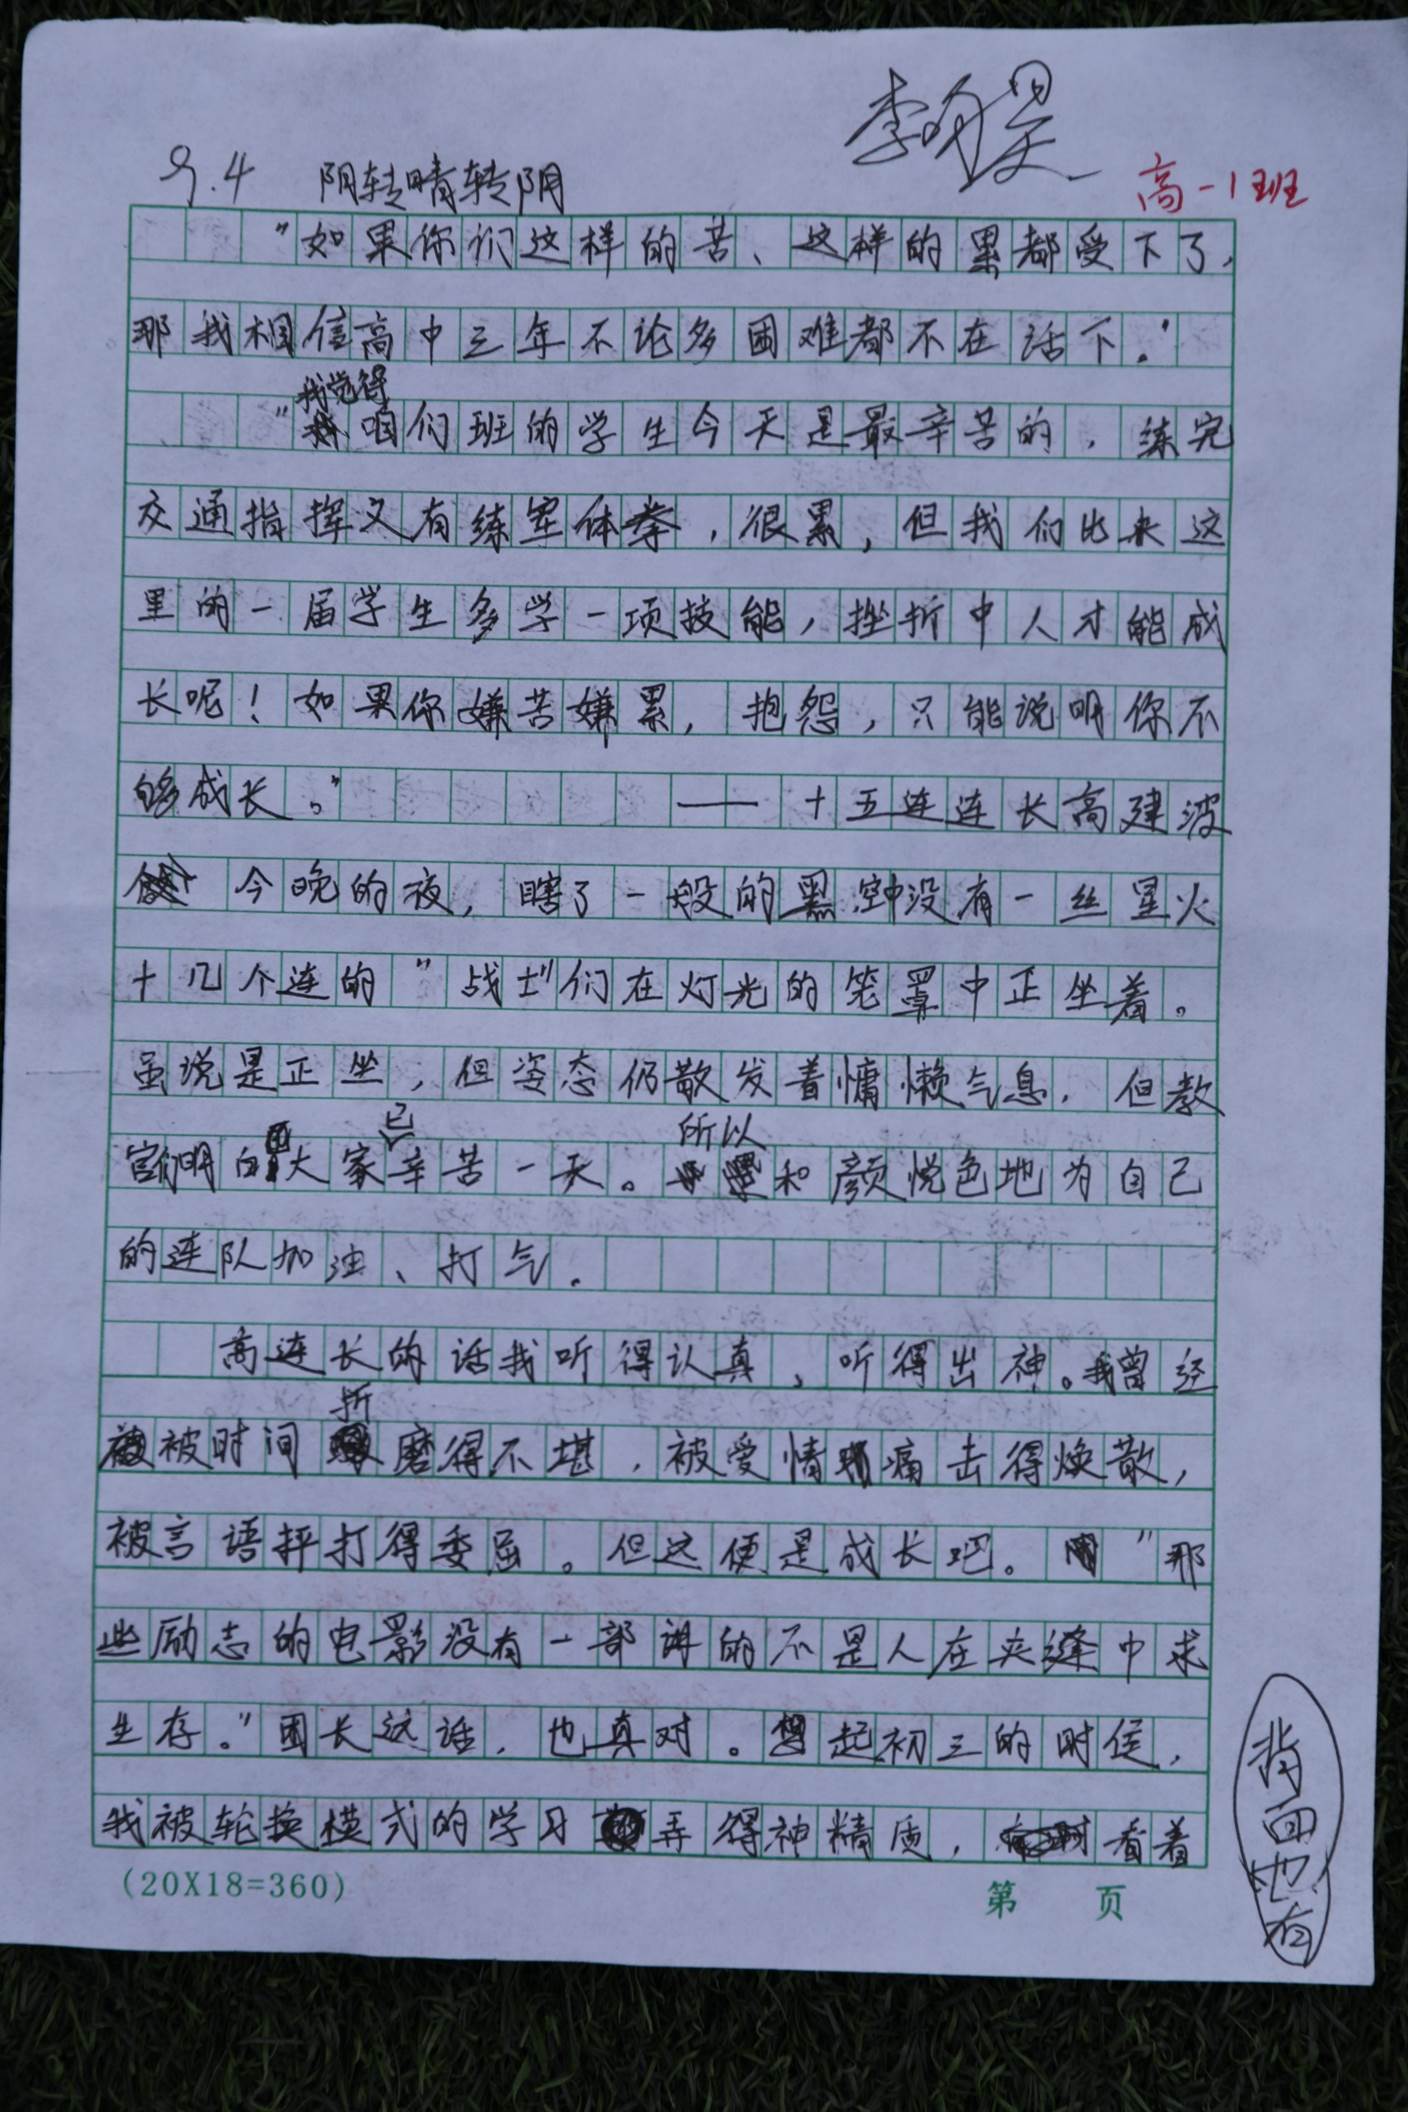 李明昊
高一1班
9.4 阴转晴转阴
"如果你们这样的苦、这样的累都受下了,
那我相信高中三年不论多困难都不在话下。"
"我觉得咱们班的学生今天是最辛苦的,练完
交通指挥又有练军体拳,很累,但我们比来这
里的一届学生多学一项技能,挫折中人才能成
长呢!如果你嫌苦嫌累,抱怨,只能说明你不
够成长。" ——十五连连长高建波
今晚的夜,瞎了一般的黑,空中没有一丝星火
十几个连的"战士"们在灯光的笼罩中正坐着。
虽说是正坐,但姿态仍散发着慵懒气息,但教
官们明白大家已辛苦一天。所以和颜悦色地为自己
的连队加油、打气.
高连长的话我听得认真,听得出神。我曾经
被时间折磨得不堪,被爱情痛击得焕散,
被言语抨打得委屈。但这便是成长吧。"那
些励志的电影没有一部讲的不是人在夹缝中求
生存。"团长这话,也真对。想起初三的时候,
我被轮换模式的学习弄得神精质,看着
(20X18=360)
第 页
背面也有